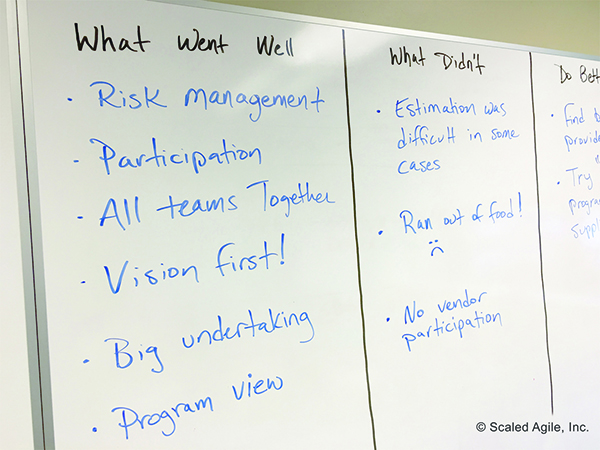 What Went Well
• Risk Management
• Participation
• All teams Together
• Vision first!
• Big undertaking
• Program view
What Didn't
• Estimation was
difficult in some
cases
• Ran out of food!
• No vendor
participation
Do
• Find
• Try
© Scaled Agile, Inc.